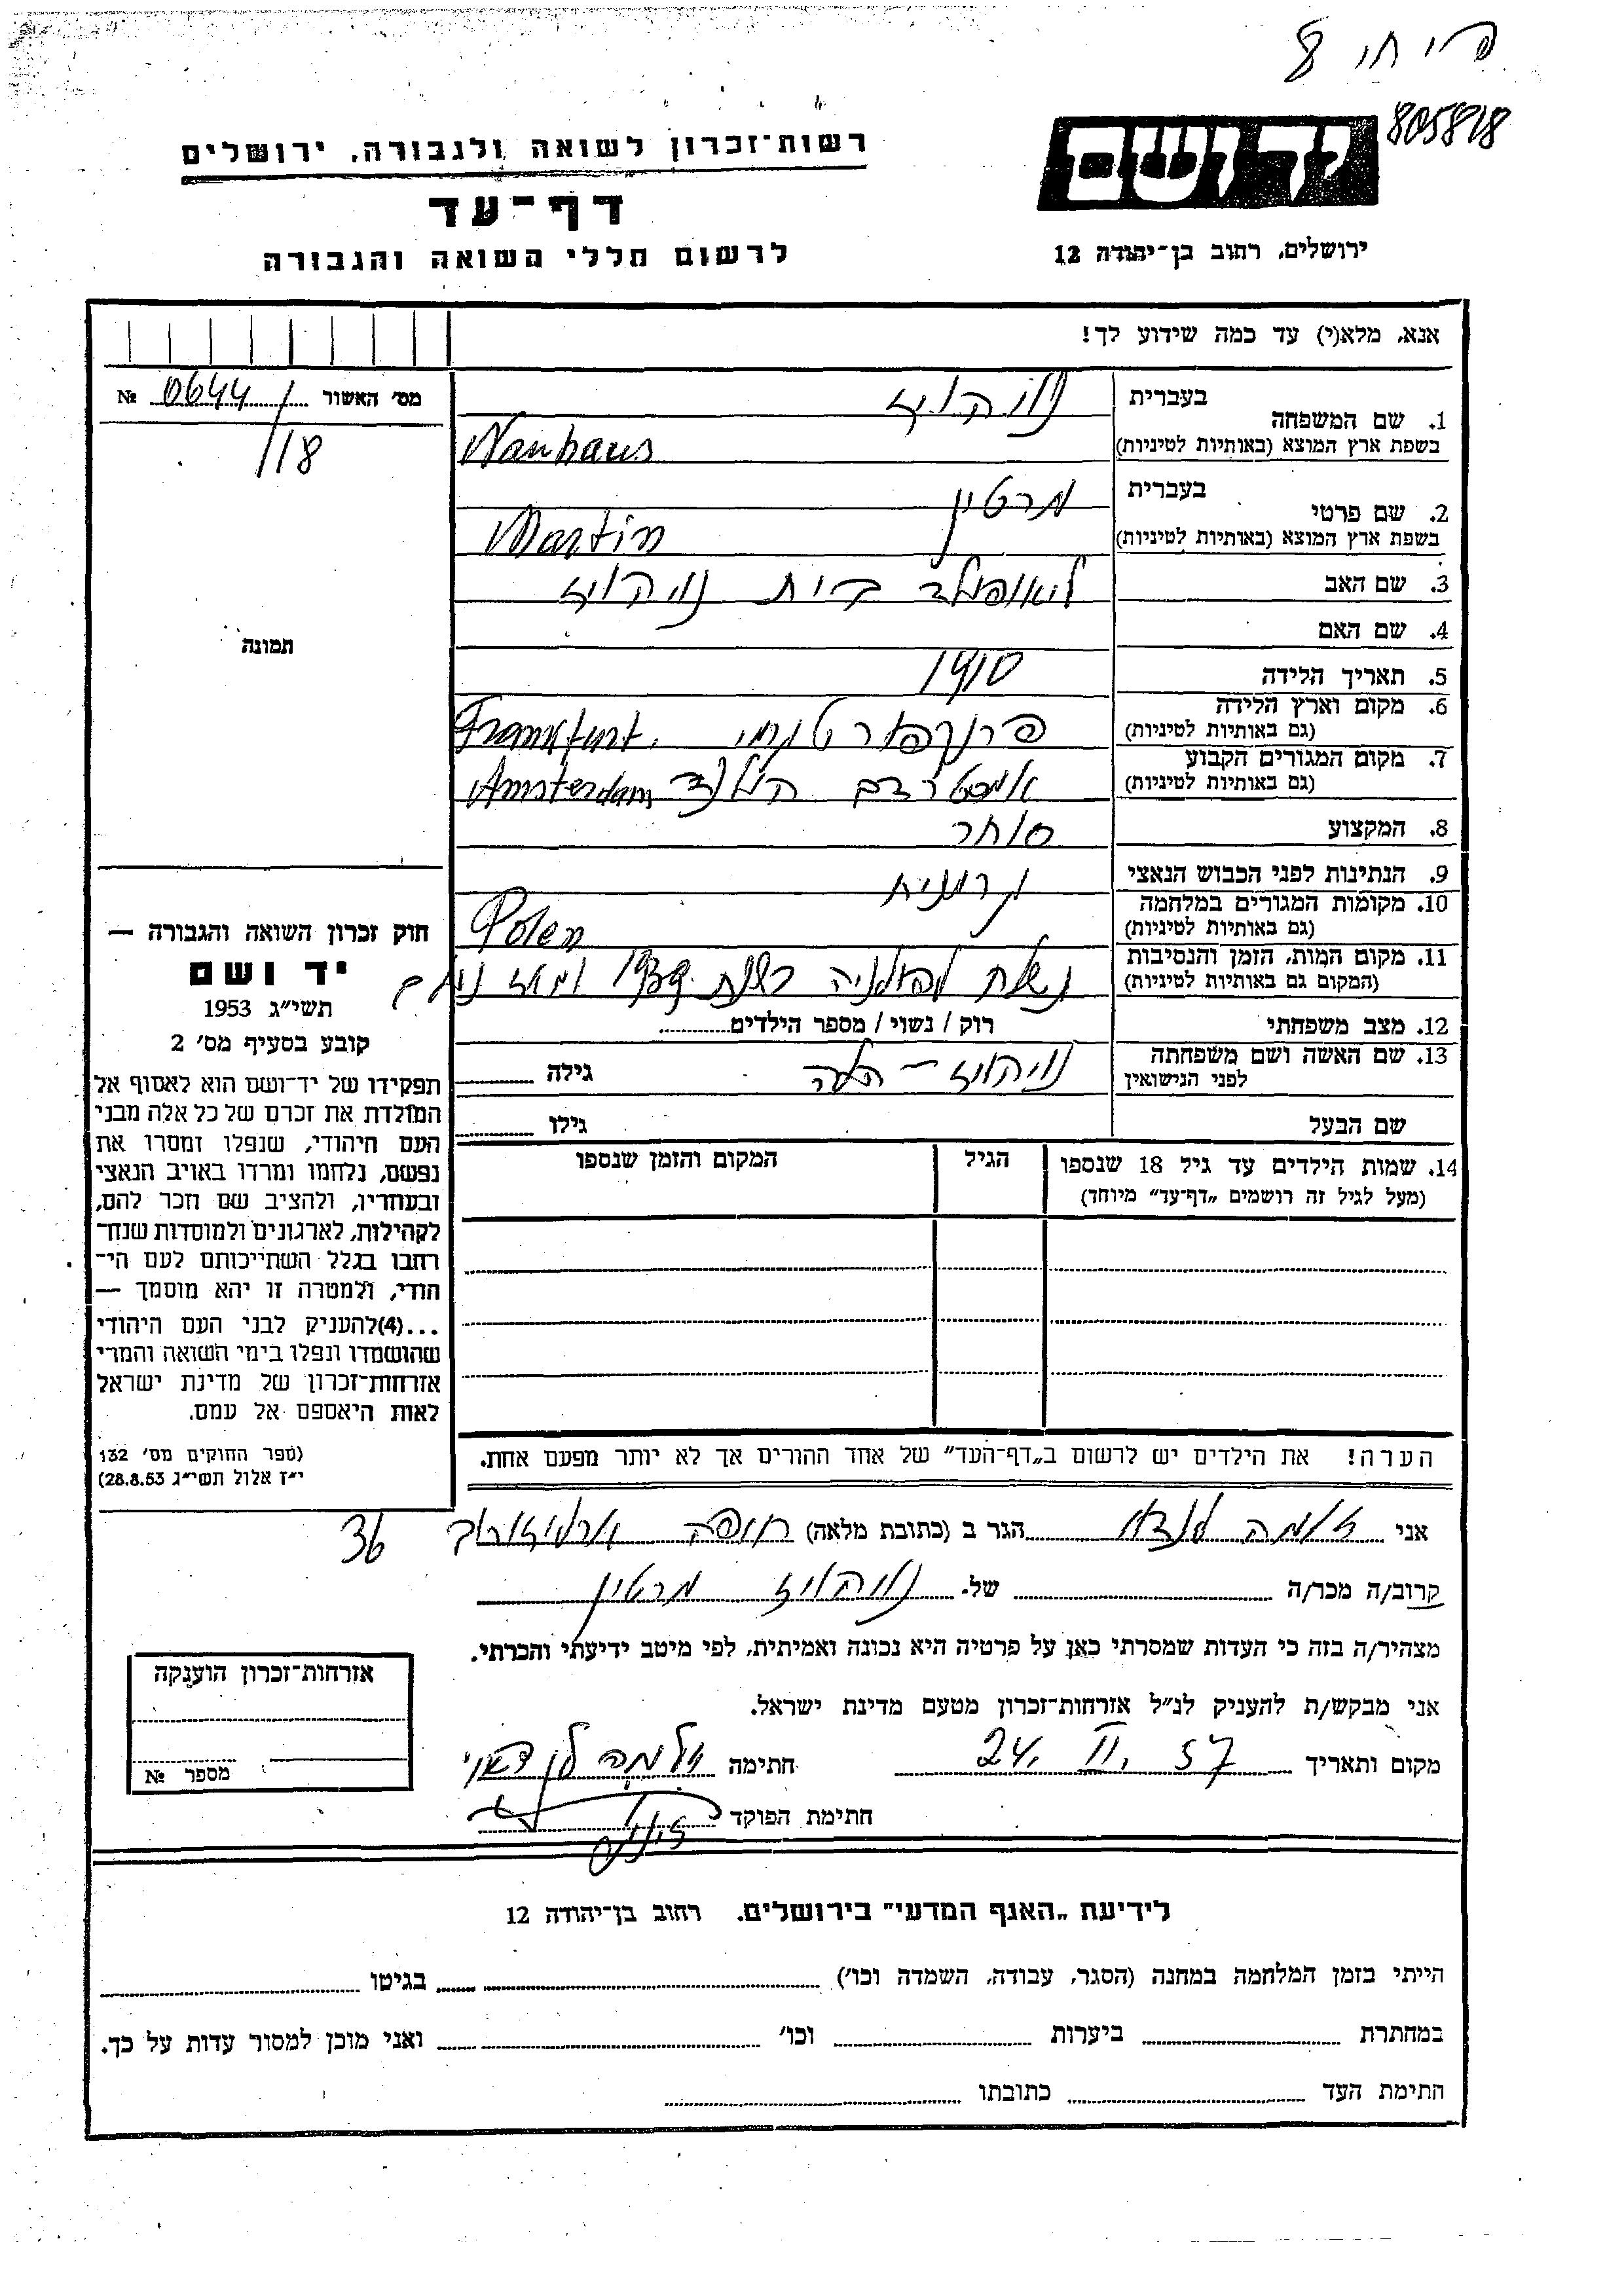 805818
יד ושם
רשות־זכרון לשואה ולגבורה, ירושלים
דף־עד
לרשום חללי השואה והגבורה
ירושלים, רחוב בן־יהודה 12
אנא, מלא(י) עד כמה שידוע לך!
מס׳ האשור 0644 №
/18
תמונה
חוק זכרון השואה והגבורה —
יד ושם
תשי״ג 1953
קובע בסעיף מס׳ 2
תפקידו של יד־ושם הוא לאסוף אל
המולדת את זכרם של כל אלה מבני
העם היהודי, שנפלו ומסרו את
נפשם, נלחמו ומרדו באויב הנאצי
ובעוזריו, ולהציב שם וזכר להם,
לקהילות, לארגונים ולמוסדות שנח־
רבו בגלל השתייכותם לעם הי־
הודי, ולמטרה זו יהא מוסמך —
...(4) להעניק לבני העם היהודי
שהושמדו ונפלו בימי השואה והמרי
אזרחות־זכרון של מדינת ישראל
לאות היאספם אל עמם.
(ספר החוקים מס׳ 132
י״ז אלול תשי״ג 28.8.53)
1. שם המשפחה בעברית נויהויז
בשפת ארץ המוצא (באותיות לטיניות) Nauhaus
2. שם פרטי בעברית מרטין
בשפת ארץ המוצא (באותיות לטיניות) Martin
3. שם האב ליאופולד בית נויהויז
4. שם האם
5. תאריך הלידה 1910
6. מקום וארץ הלידה (גם באותיות לטיניות) פרנקפורט גרמני Frankfurt.
7. מקום המגורים הקבוע (גם באותיות לטיניות) אמסטרדם הולנד Amsterdam
8. המקצוע סוחר
9. הנתינות לפני הכבוש הנאצי גרמנית
10. מקומות המגורים במלחמה (גם באותיות לטיניות) Polen
11. מקום המות, הזמן והנסיבות (המקום גם באותיות לטיניות) נשלח לפולניה בשנת 1939 ומאז
12. מצב משפחתי רוק / נשוי / מספר הילדים
13. שם האשה ושם משפחתה לפני הנישואין נויהויז — הלה גילה
שם הבעל גילו
14. שמות הילדים עד גיל 18 שנספו (מעל לגיל זה רושמים „דף־עד״ מיוחד) הגיל המקום והזמן שנספו
הערה! את הילדים יש לרשום ב„דף־העד״ של אחד ההורים אך לא יותר מפעם אחת.
אני הגר ב (כתובת מלאה) חיפה ארלוזורוב 36
קרוב/ה מכר/ה של נויהויז מרטין
מצהיר/ה בזה כי העדות שמסרתי כאן על פרטיה היא נכונה ואמיתית, לפי מיטב ידיעתי והכרתי.
אני מבקש/ת להעניק לנ״ל אזרחות־זכרון מטעם מדינת ישראל.
מקום ותאריך 24. II. 57 חתימה
חתימת הפוקד
אזרחות־זכרון הוענקה
מספר №
לידיעת „האגף המדעי״ בירושלים. רחוב בן־יהודה 12
הייתי בזמן המלחמה במחנה (הסגר, עבודה, השמדה וכו׳) בגיטו
במחתרת ביערות וכו׳ ואני מוכן למסור עדות על כך.
חתימת העד כתובתו